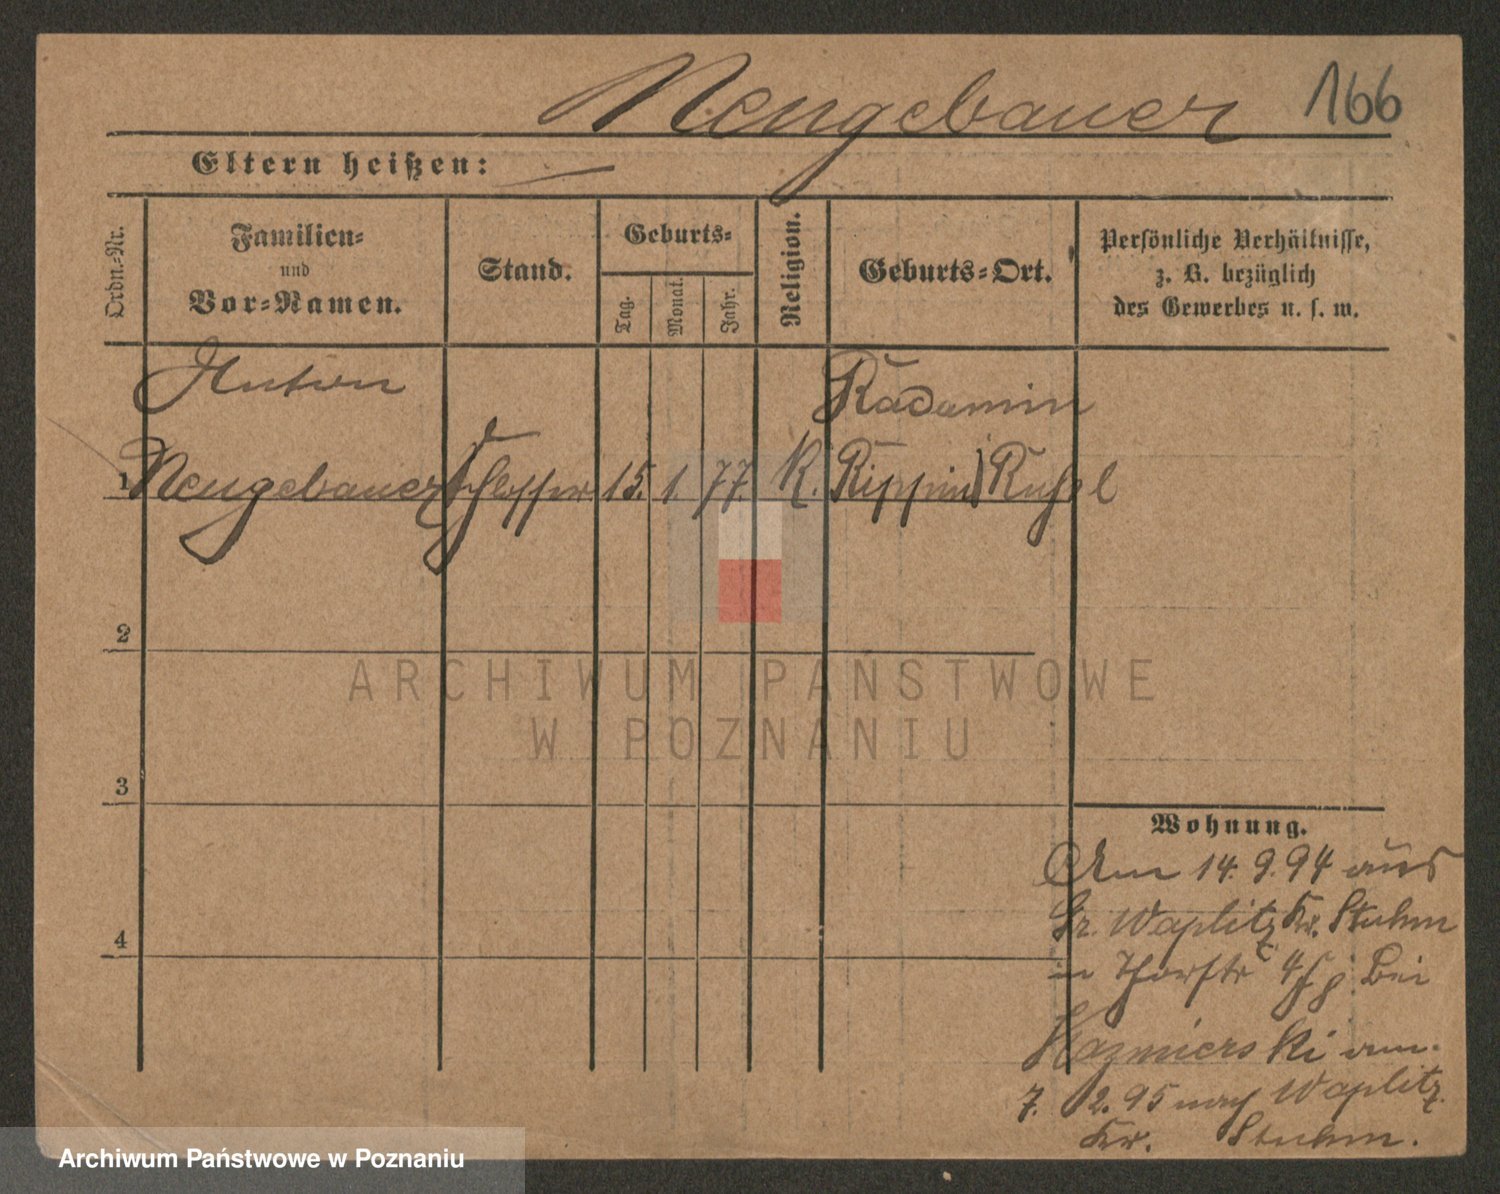 Neugebauer 166
Eltern heißen: —
Ordn.-Nr.
Familien-
und
Vor-Namen.
Stand.
Geburts-
Tag.
Monat.
Jahr.
Religion.
Geburts-Ort.
Persönliche Verhältnisse,
z. B. bezüglich
des Gewerbes u. s. w.
Anton
1 Neugebauer Schlosser 15. 1. 77. K. Rippin
2
3
4
Wohnung.
Am 14. 9. 94 aus
Gr. Waplitz Kr. Stuhm
in Thorstr 4/5 bei
Kazmierski am
7. 2. 95 nach Waplitz
Kr. Stuhm.
ARCHIWUM PAŃSTWOWE
W POZNANIU
Archiwum Państwowe w Poznaniu